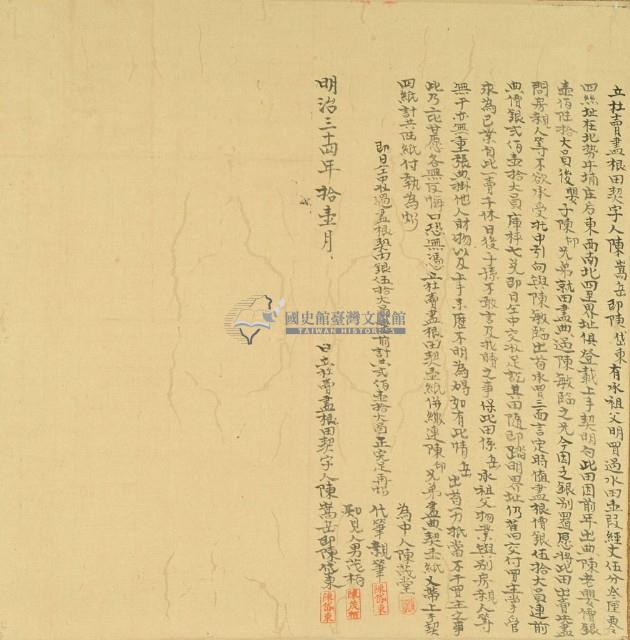 立杜賣盡根田契字人陳嵩岳即陳岱東有承祖父明買過水田壹段經丈伍分叁厘零
四絲址在北勢牛埔庄右東西南北四至界址俱登載上手契明白此田因前年出典陳老興價銀
壹佰陸拾大員後嬰子陳卯兄弟就田盡典過陳敏臨之先今因乏銀別置愿將此田出賣先盡
問房親人等不欲承受托中引向與陳敏臨出首承買三面言定時值盡根價銀伍拾大員連前
典價銀弍佰壹拾大員庫秤七兌即日仝中交收足訖其田隨即踏明界址仍舊四交付買主掌管
永為己業自此一賣千休日後子孫不敢言及找贖之事保此田係岳承祖父物業與別房親人等
無干亦無重張典掛他人財物以及上手來歷不明為碍如有此情岳出首一力抵當不干買主之事
此乃二比甘愿各無反悔口恐無憑立杜賣盡根田契壹紙併繳連陳卯兄弟盡典契壹紙又帶上手契
四紙計共紙付執為炤
即日仝中收過盡根契內銀伍拾大員連前計共弍佰壹拾大員正完足再炤
為中人陳
代筆親筆
陳岱東
知見人男茂桐
陳茂桐
明治三十四年拾壹月
日立杜賣盡根田契字人陳嵩岳即陳岱東
陳岱東
國史館臺灣文獻館
TAIWAN HISTORICA